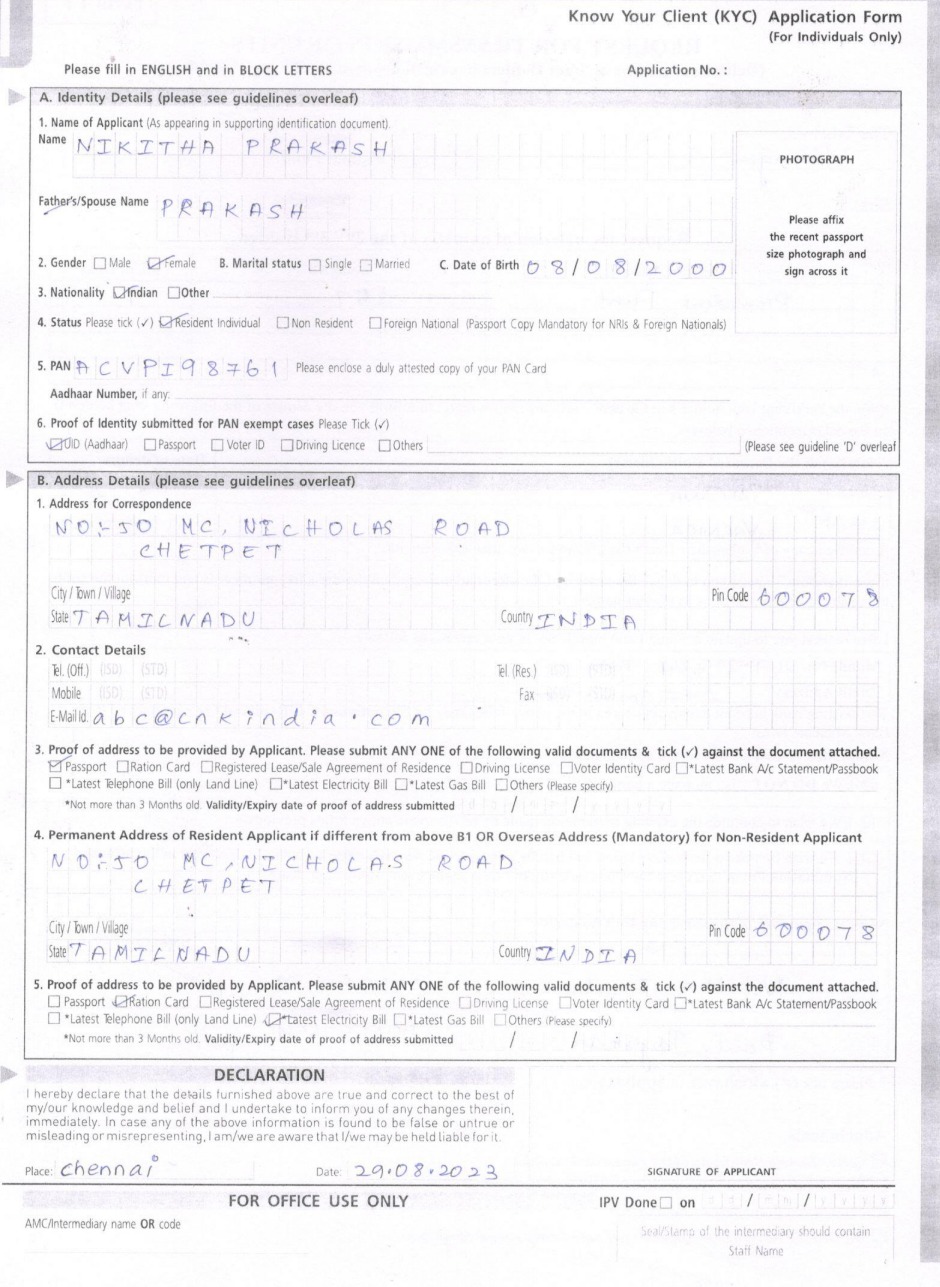 Know Your Client (KYC) Application Form
(For Individuals Only)
Please fill in ENGLISH and in BLOCK LETTERS Application No. :
A. Identity Details (please see guidelines overleaf)
1. Name of Applicant (As appearing in supporting identification document).
Name NIKITHA PRAKASH
PHOTOGRAPH
Please affix
the recent passport
size photograph and
sign across it
Father's/Spouse Name PRAKASH
2. Gender Male Female B. Marital status Single Married C. Date of Birth 08/08/2000
3. Nationality Indian Other
4. Status Please tick (✓) Resident Individual Non Resident Foreign National (Passport Copy Mandatory for NRIs & Foreign Nationals)
5. PAN ACVPI98761 Please enclose a duly attested copy of your PAN Card
Aadhaar Number, if any:
6. Proof of Identity submitted for PAN exempt cases Please Tick (✓)
UID (Aadhaar) Passport Voter ID Driving Licence Others (Please see guideline 'D' overleaf
B. Address Details (please see guidelines overleaf)
1. Address for Correspondence
NO:-50 MC, NICHOLAS ROAD
CHETPET
City / Town / Village Pin Code 600078
State TAMILNADU Country INDIA
2. Contact Details
Tel. (Off.) (ISD) (STD) Tel. (Res.)
Mobile (ISD) (STD) Fax
E-Mail Id. abc@cnkindia.com
3. Proof of address to be provided by Applicant. Please submit ANY ONE of the following valid documents & tick (✓) against the document attached.
Passport Ration Card Registered Lease/Sale Agreement of Residence Driving License Voter Identity Card *Latest Bank A/c Statement/Passbook
*Latest Telephone Bill (only Land Line) *Latest Electricity Bill *Latest Gas Bill Others (Please specify)
*Not more than 3 Months old. Validity/Expiry date of proof of address submitted / /
4. Permanent Address of Resident Applicant if different from above B1 OR Overseas Address (Mandatory) for Non-Resident Applicant
NO:-50 MC, NICHOLAS ROAD
CHETPET
City / Town / Village Pin Code 600078
State TAMILNADU Country INDIA
5. Proof of address to be provided by Applicant. Please submit ANY ONE of the following valid documents & tick (✓) against the document attached.
Passport Ration Card Registered Lease/Sale Agreement of Residence Driving License Voter Identity Card *Latest Bank A/c Statement/Passbook
*Latest Telephone Bill (only Land Line) *Latest Electricity Bill *Latest Gas Bill Others (Please specify)
*Not more than 3 Months old. Validity/Expiry date of proof of address submitted / /
DECLARATION
I hereby declare that the details furnished above are true and correct to the best of
my/our knowledge and belief and I undertake to inform you of any changes therein,
immediately. In case any of the above information is found to be false or untrue or
misleading or misrepresenting, I am/we are aware that I/we may be held liable for it.
Place: chennai Date: 29.08.2023 SIGNATURE OF APPLICANT
FOR OFFICE USE ONLY IPV Done on / /
AMC/Intermediary name OR code
Seal/Stamp of the intermediary should contain
Staff Name